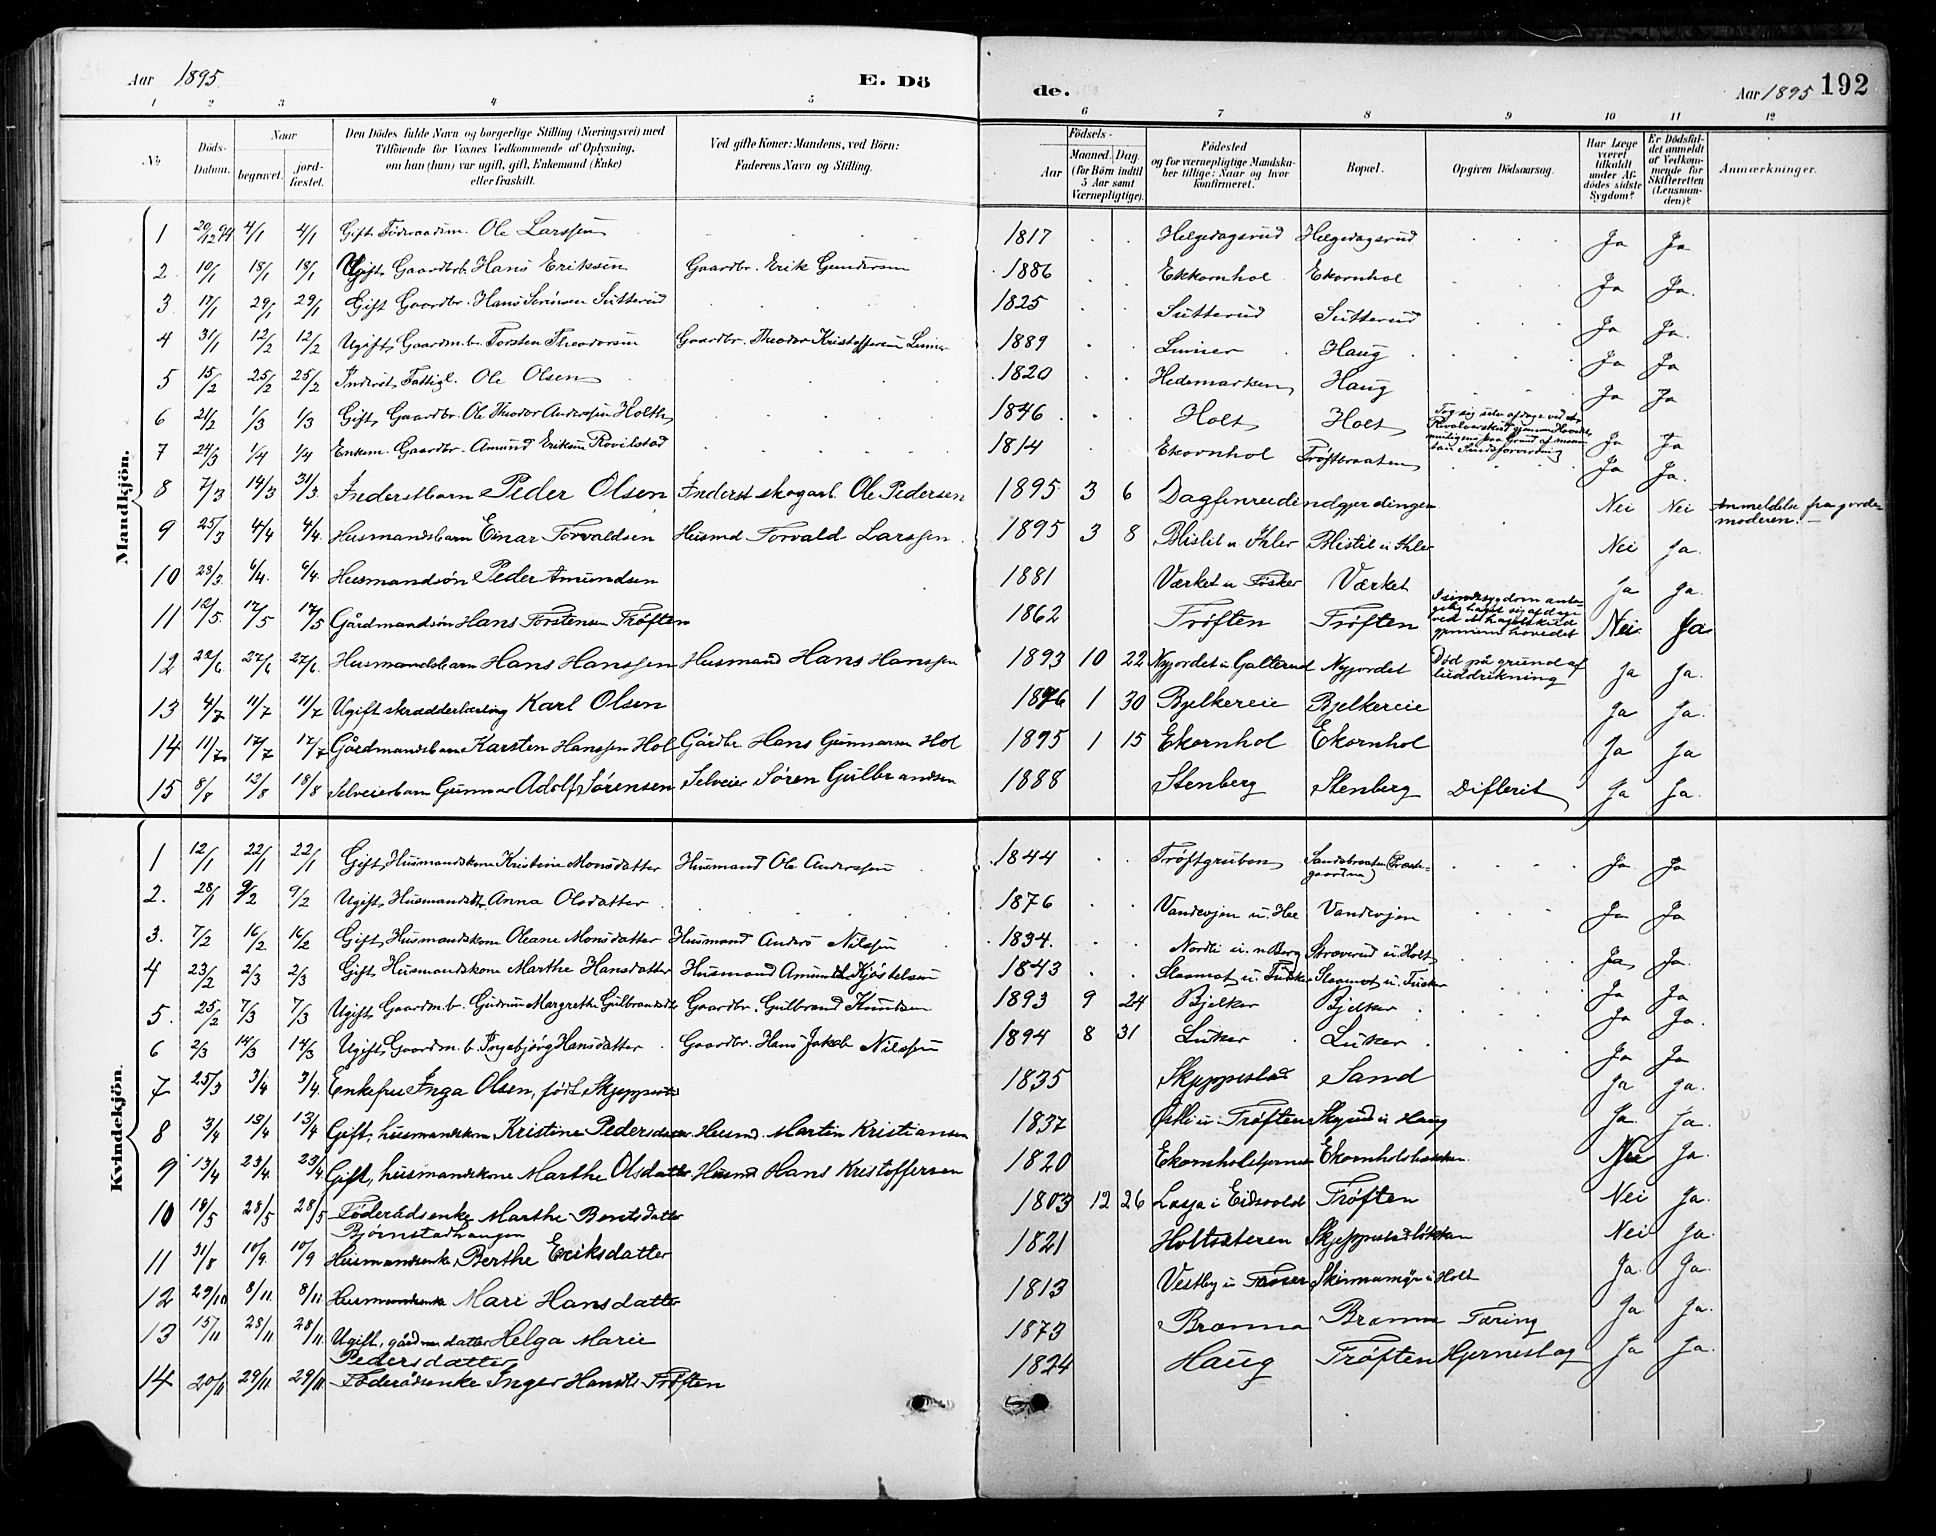 Aar 1895. E. Döde. Aar 1895 192
1 2 3 4 5 6 7 8 9 10 11 12
No
Döds-Datum.
Naar
begravet.
jord-fæstet.
Den Dödes fulde Navn og borgerlige Stilling (Næringsvei) med
Tilföiende for Voxnes Vedkommende af Oplysning,
om han (hun) var ugift, gift, Enkemand (Enke)
eller fraskilt.
Ved gifte Koner: Mandens, ved Börn:
Faderens Navn og Stilling.
Födsels-
Aar
Maaned. Dag.
(for Börn indtil
5 Aar samt
Værnepligtige).
Födested
og for værnepligtige Mandska-
ber tillige: Naar og hvor
konfirmeret.
Bopæl.
Opgiven Dödsaarsag.
Har Læge
været
tilkaldt
under Af-
dödes sidste
Sygdom?
Er Dödsfal-
det anmeldt
af Vedkom-
mende for
Skifteretten
(Lensman-
den)?
Anmærkninger.
Mandkjön.
1 20/12 94 4/1 4/1 Gift Föderaadsm. Ole Larssen 1817 Helgedagsrud Helgedagsrud Ja Ja
2 10/1 18/1 18/1 Ugift Gaardbrb Hans Eriksen Gaardbr. Erik Gundersen 1886 Ekkornhol Ekornhol Ja Ja.
3 17/1 29/1 29/1 Gift Gaardbr. Hans Sörensen Sutterud 1825 Sutterud Sutterud Ja Ja.
4 31/1 12/2 12/2 Ugift, Gaardm.b. Torsten Theodorsen Gaardbr. Theodor Kristoffersen Linner 1889 Linner Haug Ja Ja
5 15/2 25/2 25/2 Inderst, Fattigl. Ole Olsen 1820 Hedemarken Haug Ja Ja
6 21/2 1/3 1/3 Gift, Gaardbr. Ole Theodor Anderssen Holth 1846 Holt Holt Tog sig selv afdage ved et
Revolverskud gjennem Hovedet, Ja Ja
7 24/3 1/4 1/4 Enkem. Gaardbr. Amund Eriksen Rovilstad 1814 Ekornhol Tröftbraaten Ja Ja.
8 7/3 14/3 31/3 Inderstbarn Peder Olsen Inderst skogarb. Ole Pedersen 1895 3 6 Dagfinrudeindgjerdingen Nei Nei Anmeldelse fra gjorde-
moderen.
9 25/3 4/4 4/4. Husmandsbarn Einar Torvaldsen Husmd Torvald Larssen 1895 3 8 Blistil u Ihler Blistil u Ihler Nei Ja.
10 28/3. 6/4. 6/4. Husmandsön Peder Amundsen 1881 Værket u Fösker Værket Ja Ja.
11 12/5. 17/5 17/5 Gårdmandsön Hans Torstensen Tröften 1862 Tröften Tröften I sindssygdom anta-
gelig taget sig af dage
ved et hagelskud
gjennem hovedet Nei Ja
12 22/6 27/6 27/6. Husmandsbarn Hans Hanssen Husmand Hans Hanssen 1893 10 22 Nyjordet u Galterud Nyjordet Död på grund af
luddrikning Ja Ja.
13 4/7 11/7 11/7 Ugift skrædderlærling Karl Olsen 1876 1 30 Bjelkereie Bjelkereie Ja Ja.
14 11/7 17/7 17/7 Gårdmandsbarn Karsten Hanssen Hol Gårdbr Hans Gunnarsen Hol 1895 1 15 Ekornhol Ekornhol Ja Ja
15 8/8 12/8 18/8 Selveierbarn Gunnar Adolf Sörensen Selveier Sören Gulbrandsen 1888 Stenberg Stenberg Difterit Ja Ja.
Kvindekjön.
1 12/1 22/1 22/1 Gift, Husmandskone Kristine Monsdatter Husmand Ole Anderssen 1844 Tröftgruben Sandsbraaten (Præste-
gaarden) Ja Ja
2. 28/1 9/2 9/2 Ugift, Husmandsdtr. Anna Olsdatter 1876 Vandvejen u. Hee Vandvejen Ja Ja
3. 7/2 16/2 16/2 Gift, Husmandskone Oleane Monsdatter Husmand Anders Nilssen 1834. Nordli u. n. Berg Stræverud u. Holt Ja Ja.
4 23/2 2/3 2/3 Gift Husmandskone Marthe Hansdatter Husmand Amund Kjöstelsen 1843 Slaamot u. Fusker Slaamot u. Fusker Ja Ja
5. 25/2 7/3 7/3 Ugift, Gaardm.b. Gudrun Margrethe Gulbrandsdtr Gaardbr. Gulbrand Knudsen 1893 9 24 Bjelker Bjelker Ja Ja.
6 2/3 14/3 14/3 Ugift, Gaardm. b. Ingebjörg Hansdatter Gaardbr. Hans Jakob Nilssen 1894 8 31 Luker Luker Ja Ja
7 25/3 3/4 3/4. Enkefru Inga Olsen, född Skjeppestd 1835 Skjeppestad Sand Ja Ja.
8 3/4 13/4 13/4 Gift, husmandskone Kristine Pedersdatter Husmd. Martin Kristiansen 1837 Östli u. Tröften Skyrud u Haug Ja. Ja.
9 13/4 23/4. 23/4 Gift, husmandskone Marthe Olsdatter Husmd Hans Kristoffersen 1820 Ekornholstjernet Ekornholsbakken. Nei Ja.
10 19/5 28/5 28/5 Föderådsenke Marthe Berntsdatter
Björnstadhaugen 1803 12 26 Lasja i Eidsvold Tröften Nei Ja.
11 31/8 10/9. 10/9 Husmandsenke Berthe Eriksdatter 1821 Holtsæteren Skjeppestadlökken Nei Ja.
12 29/10 8/11 8/11 Husmandsenke Mari Hansdatter 1813 Vestby u Fröser Skinnamyr u Holt Ja. Ja.
13 15/11 28/11 28/11. Ugift, gårdmdatter Helga Marie
Pedersdatter 1873 Brænna Brænna Tæring Ja Ja.
14 20/11 29/11 29/11 Föderådsenke Inger Hansdtr Tröften 1824 Haug Tröften Hjerneslag Ja Ja.